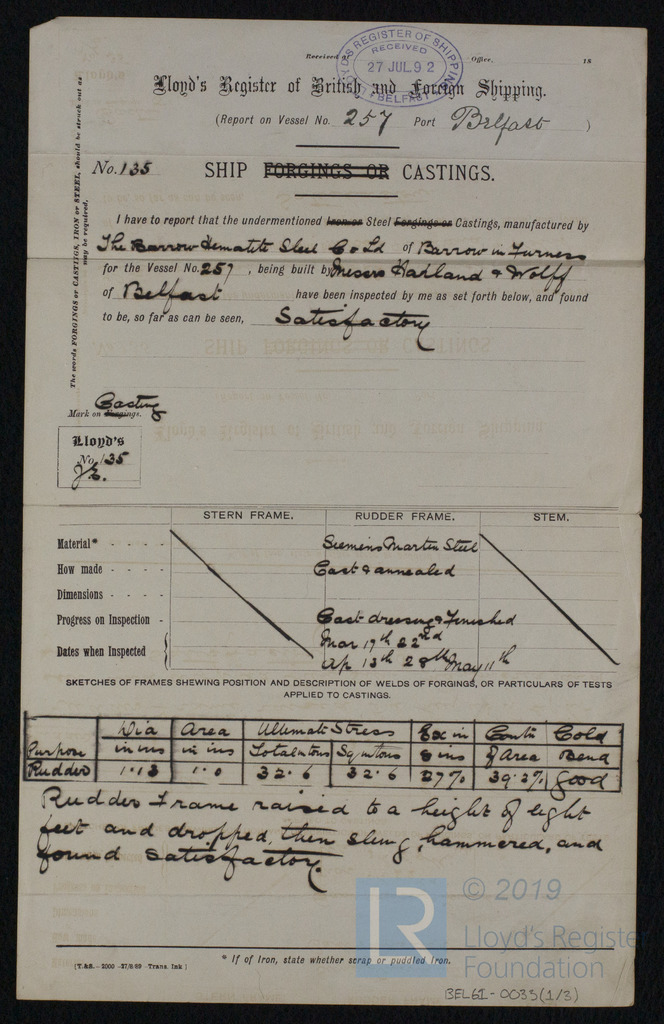 Received at Office, 18
LLOYD'S REGISTER OF SHIPPING
RECEIVED
27 JUL.92
BELFAST
Lloyd's Register of British and Foreign Shipping.
(Report on Vessel No. 257 Port Belfast )
No. 135 SHIP FORGINGS OR CASTINGS.
The words FORGINGS or CASTINGS, IRON or STEEL, should be struck out as
may be required.
I have to report that the undermentioned Iron or Steel Forgings or Castings, manufactured by
The Barrow Hematite Steel Co Ld of Barrow in Furness
for the Vessel No. 257, being built by Messrs Harland & Wolff
of Belfast have been inspected by me as set forth below, and found
to be, so far as can be seen, Satisfactory
Casting
Mark on Forgings.
Lloyd's
No. 135
STERN FRAME. RUDDER FRAME. STEM.
Material* Siemens Martin Steel
How made Cast & annealed
Dimensions
Progress on Inspection Cast dressing & Finished
Dates when Inspected Mar 17th 22nd
Ap 13th 28th May 11th
SKETCHES OF FRAMES SHEWING POSITION AND DESCRIPTION OF WELDS OF FORGINGS, OR PARTICULARS OF TESTS
APPLIED TO CASTINGS.
Dia Area Ultimate Stress Ex in Contn Cold
Purpose in ins in ins Total in tons Sq in tons 8 ins of Area Bend
Rudder 1.13 1.0 32.6 32.6 27% 39.2% Good
Rudder Frame raised to a height of eight
feet and dropped, then slung, hammered, and
found satisfactory.
LR © 2019
Lloyd's Register
Foundation
* If of Iron, state whether scrap or puddled Iron.
[T.&S.—2000—27/8/89—Trans. Ink]
BEL61-0033(1/3)